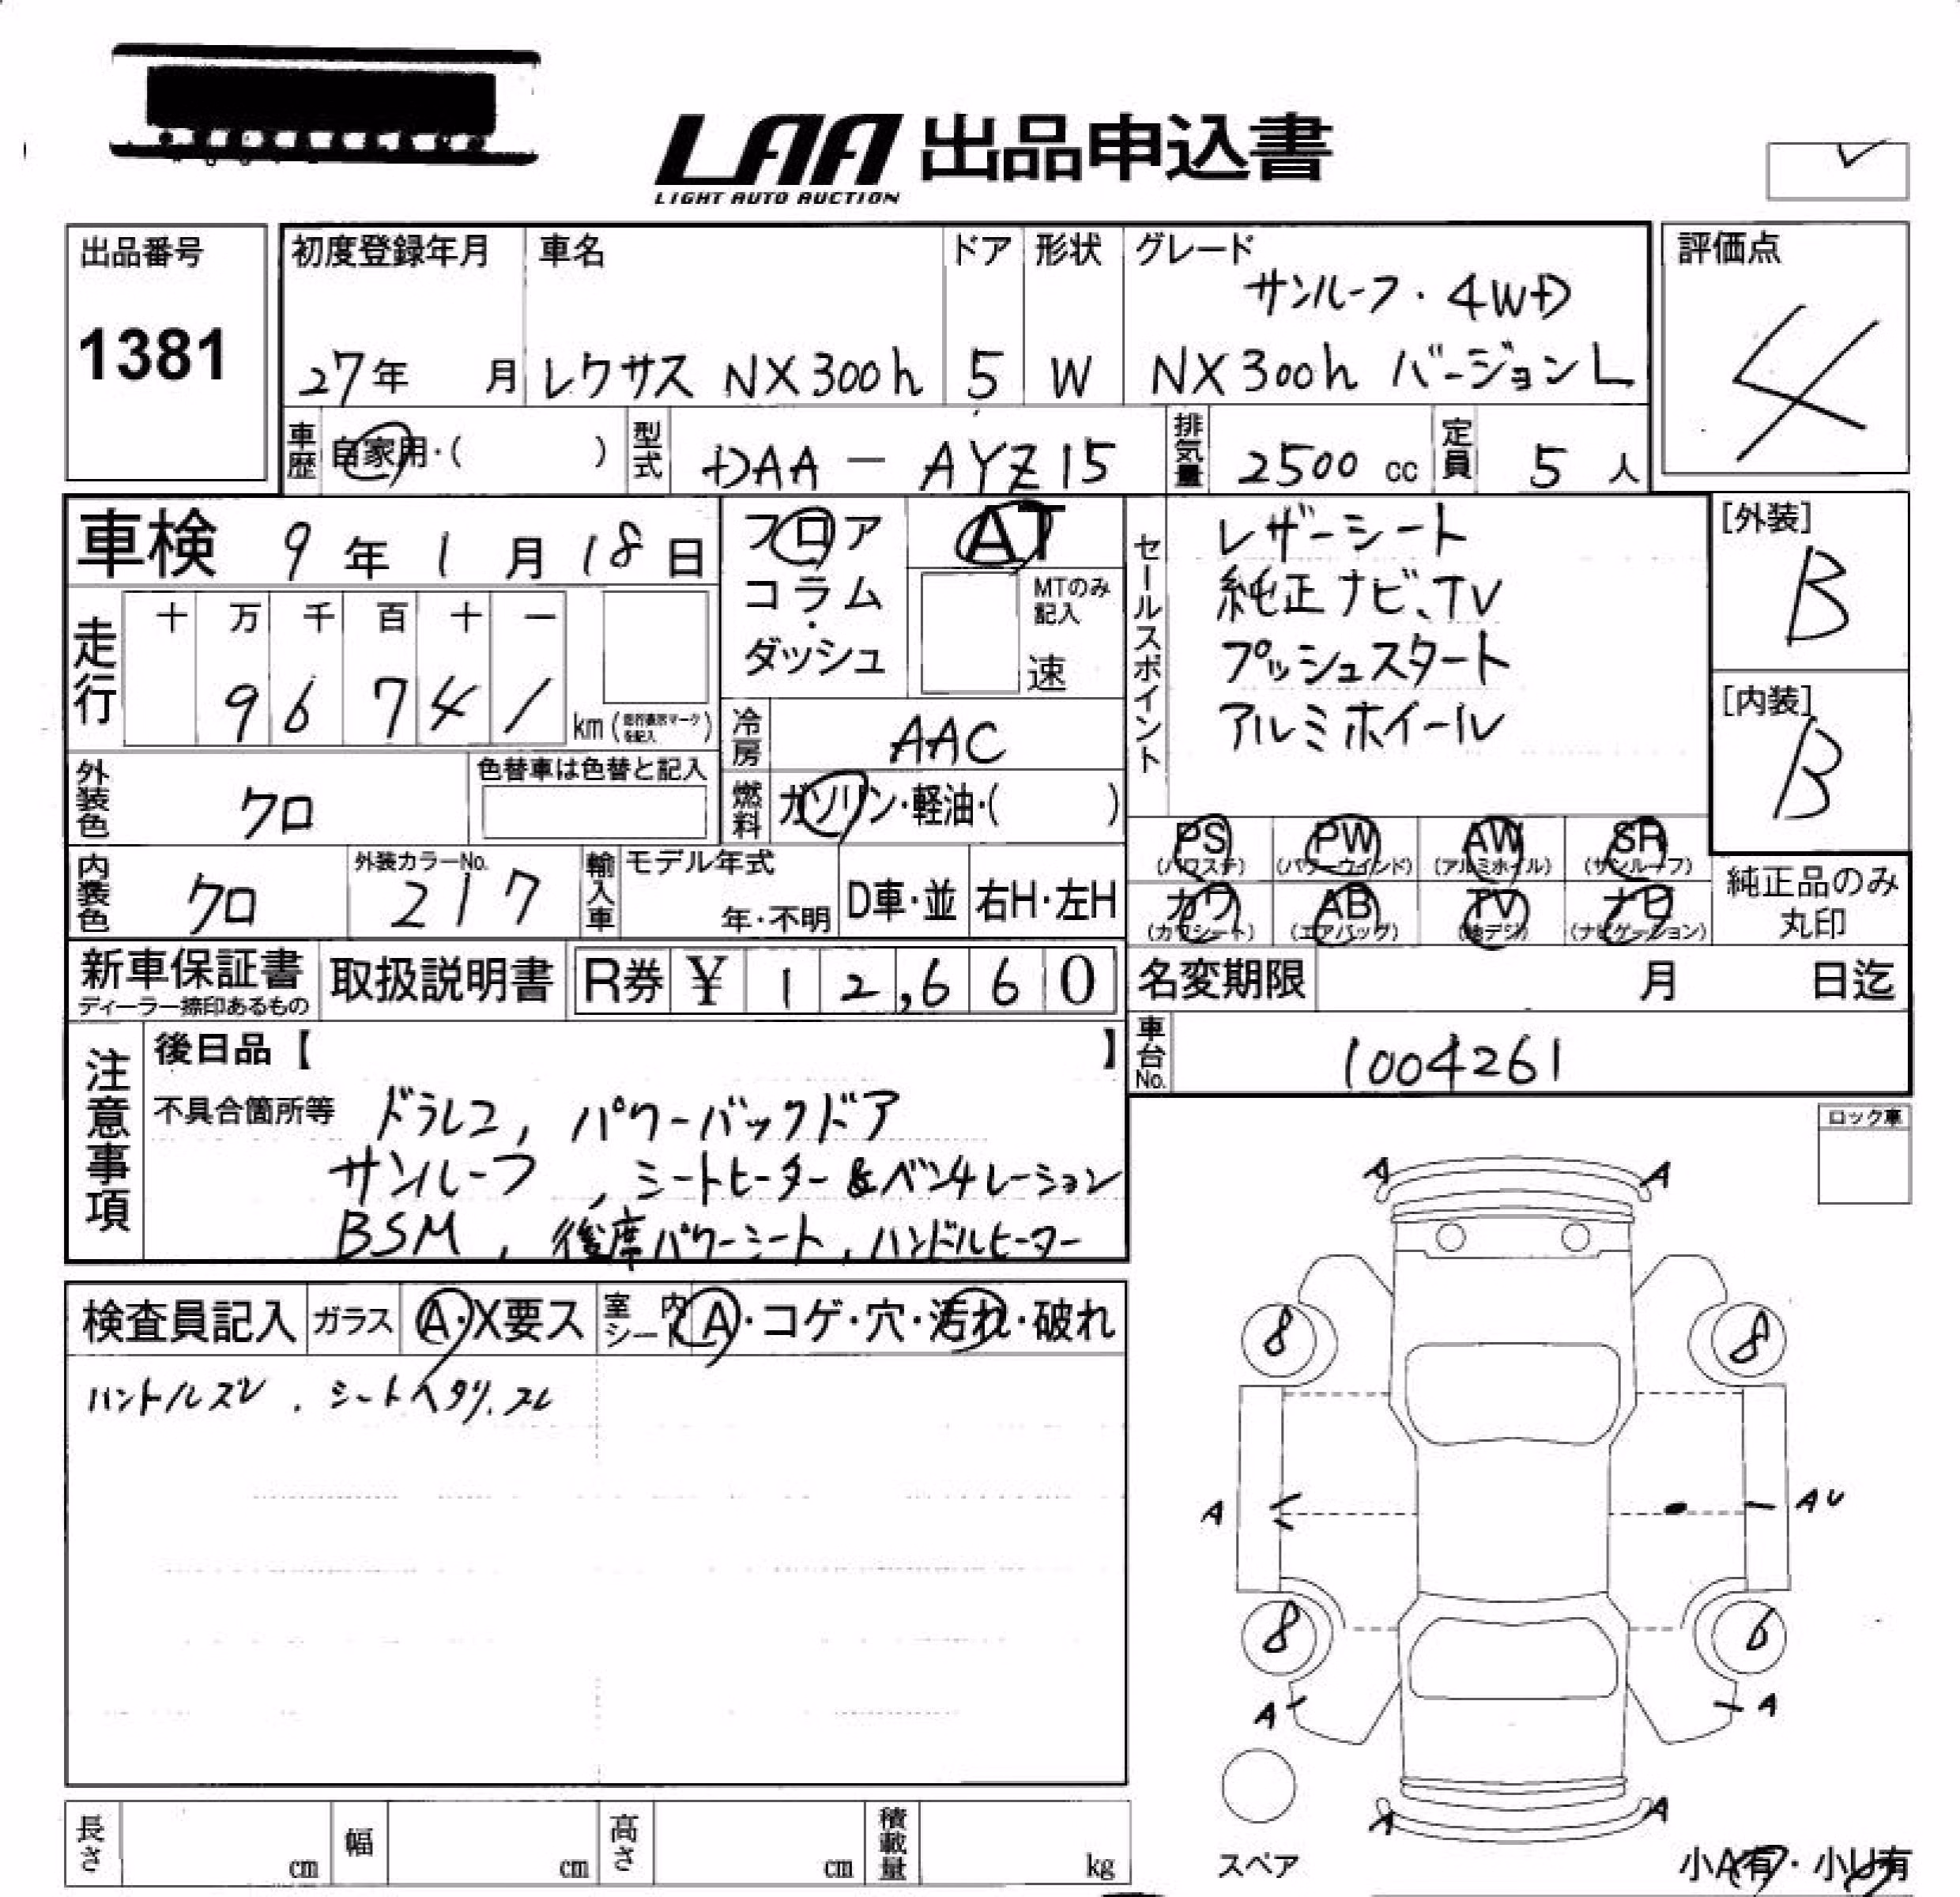 LAA 出品申込書
LIGHT AUTO AUCTION
出品番号
1381
初度登録年月
27年 月
車名
レクサス NX300h
ドア
5
形状
W
グレード
サンルーフ・4WD
NX300h バージョンL
評価点
4
車歴 自家用・( )
型式 DAA-AYZ15
排気量 2500 cc
定員 5 人
車検 9年 1月 18日
走行
十 万 千 百 十 一
9 6 7 4 1
km (走行表示マークを記入)
フロア
コラム
・
ダッシュ
AT
MTのみ記入
速
冷房 AAC
燃料 ガソリン・軽油・( )
セールスポイント
レザーシート
純正ナビ、TV
プッシュスタート
アルミホイール
[外装]
B
[内装]
B
外装色 クロ
色替車は色替と記入
内装色 クロ
外装カラーNo.
217
輸入車
モデル年式
年・不明
D車・並
右H・左H
PS (パワステ)
PW (パワーウインド)
AW (アルミホイル)
SR (サンルーフ)
カワ (カワシート)
AB (エアバッグ)
TV (地デジ)
ナビ (ナビゲーション)
純正品のみ
丸印
新車保証書
ディーラー捺印あるもの
取扱説明書
R券 ¥ 12,660
名変期限 月 日迄
車台No. 1004261
注意事項
後日品【 】
不具合箇所等 ドラレコ, パワーバックドア
サンルーフ, シートヒーター&ベンチレーション
BSM, 後席パワーシート, ハンドルヒーター
ロック車
検査員記入
ガラス A・X要ス
室内シート A・コゲ・穴・汚れ・破れ
ハンドルズレ、シートヘタリ、スレ
A A
8 8
A AU
8 6
A A
A A
スペア
小A有・小U有
長さ cm
幅 cm
高さ cm
積載量 kg